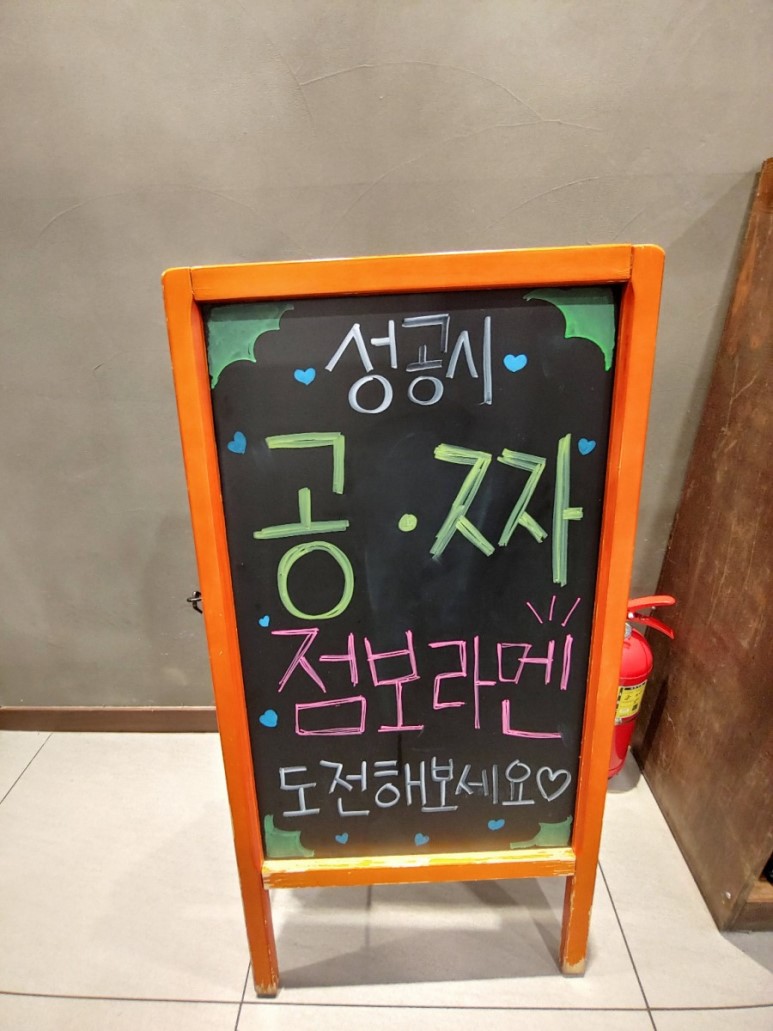 성공시
공·짜
점보라멘
도전해보세요♡